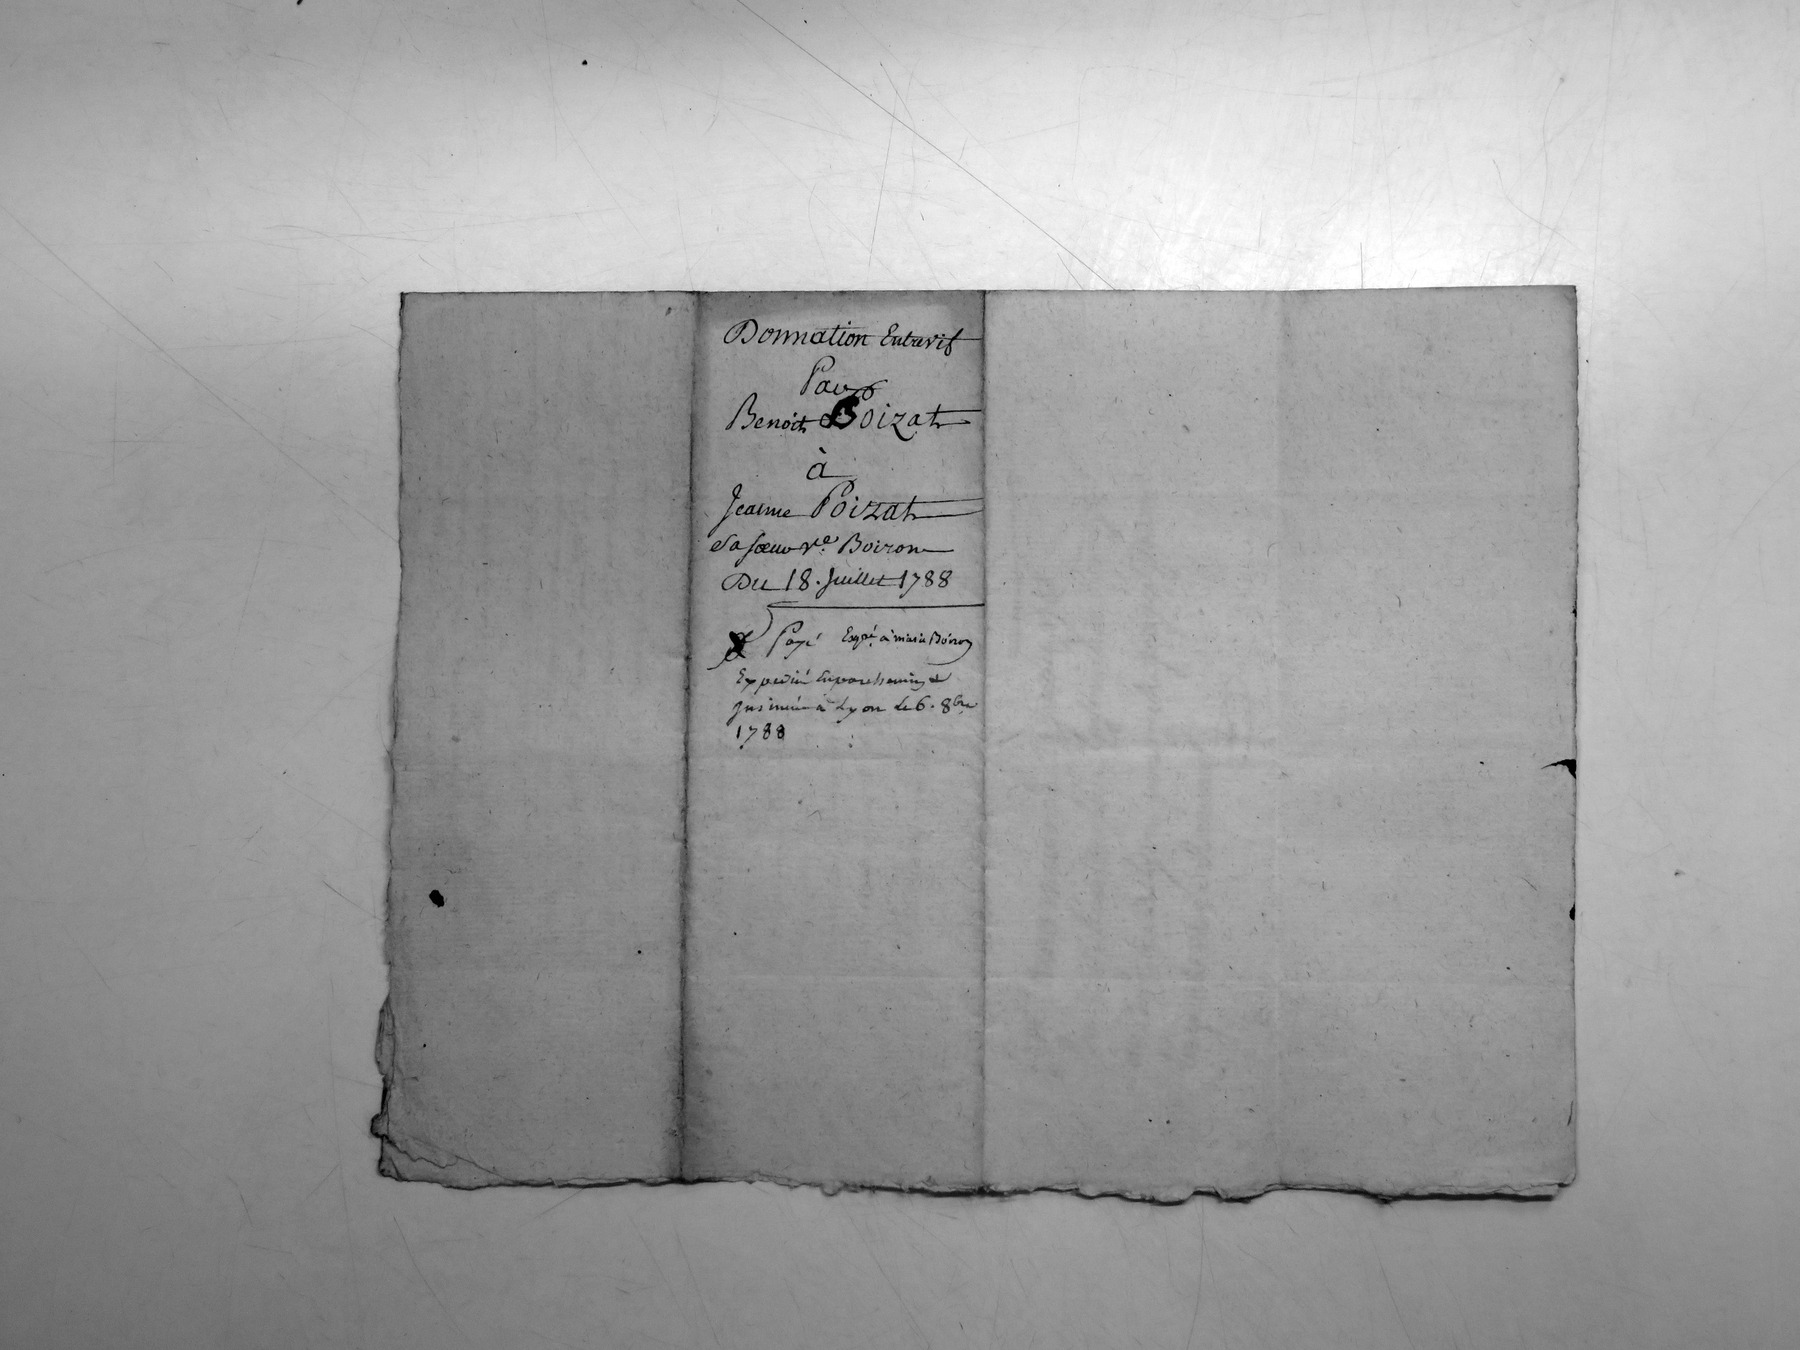 Donnation Entrevif
Par
Benoit Poizat
à
Jeanne Poizat
Sa sœur ve. Boiron
Du 18. Juillet 1788
Payé Expé. à marie Boiron
Expedié en parchemin et
Insinué à Lyon le 6. 8bre
1788